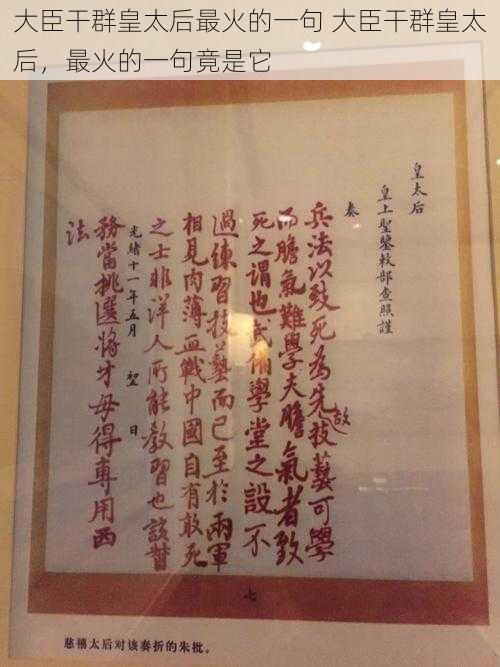 大臣干群皇太后最火的一句 大臣干群皇太
后，最火的一句竟是它
皇太后
皇上聖鑒敕部查照謹
奏
兵法以致死為先技藝可學
故
而膽氣難學夫膽氣者致
死之謂也武備學堂之設不
過練習技藝而已至於兩軍
相見肉薄血戰中國自有敢死
之士非洋人所能教習也該督
光緒十一年五月 初 日
務當挑選將才毋得專用西
法
七
慈禧太后对该奏折的朱批。